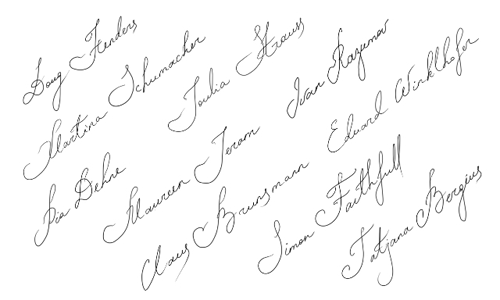 Doug Fenders
Martina Schumacher
Joulia Strauss
Ivan Razumov
Pia Dehne
Maureen Jeram
Eduard Winklhofer
Claus Brunsmann
Simon Faithfull
Tatjana Bergius